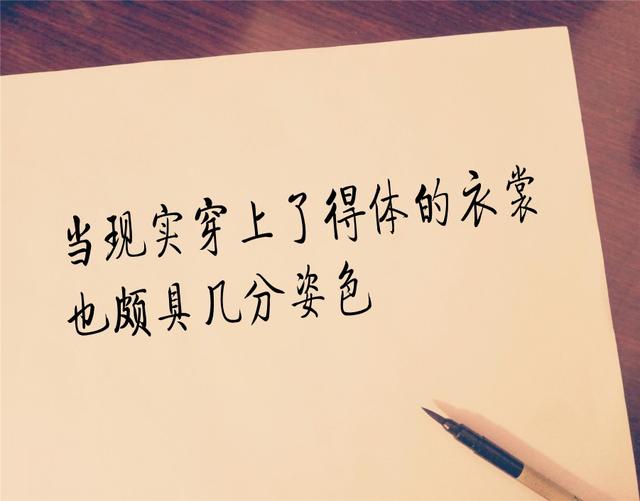 当现实穿上了得体的衣裳
也颇具几分姿色